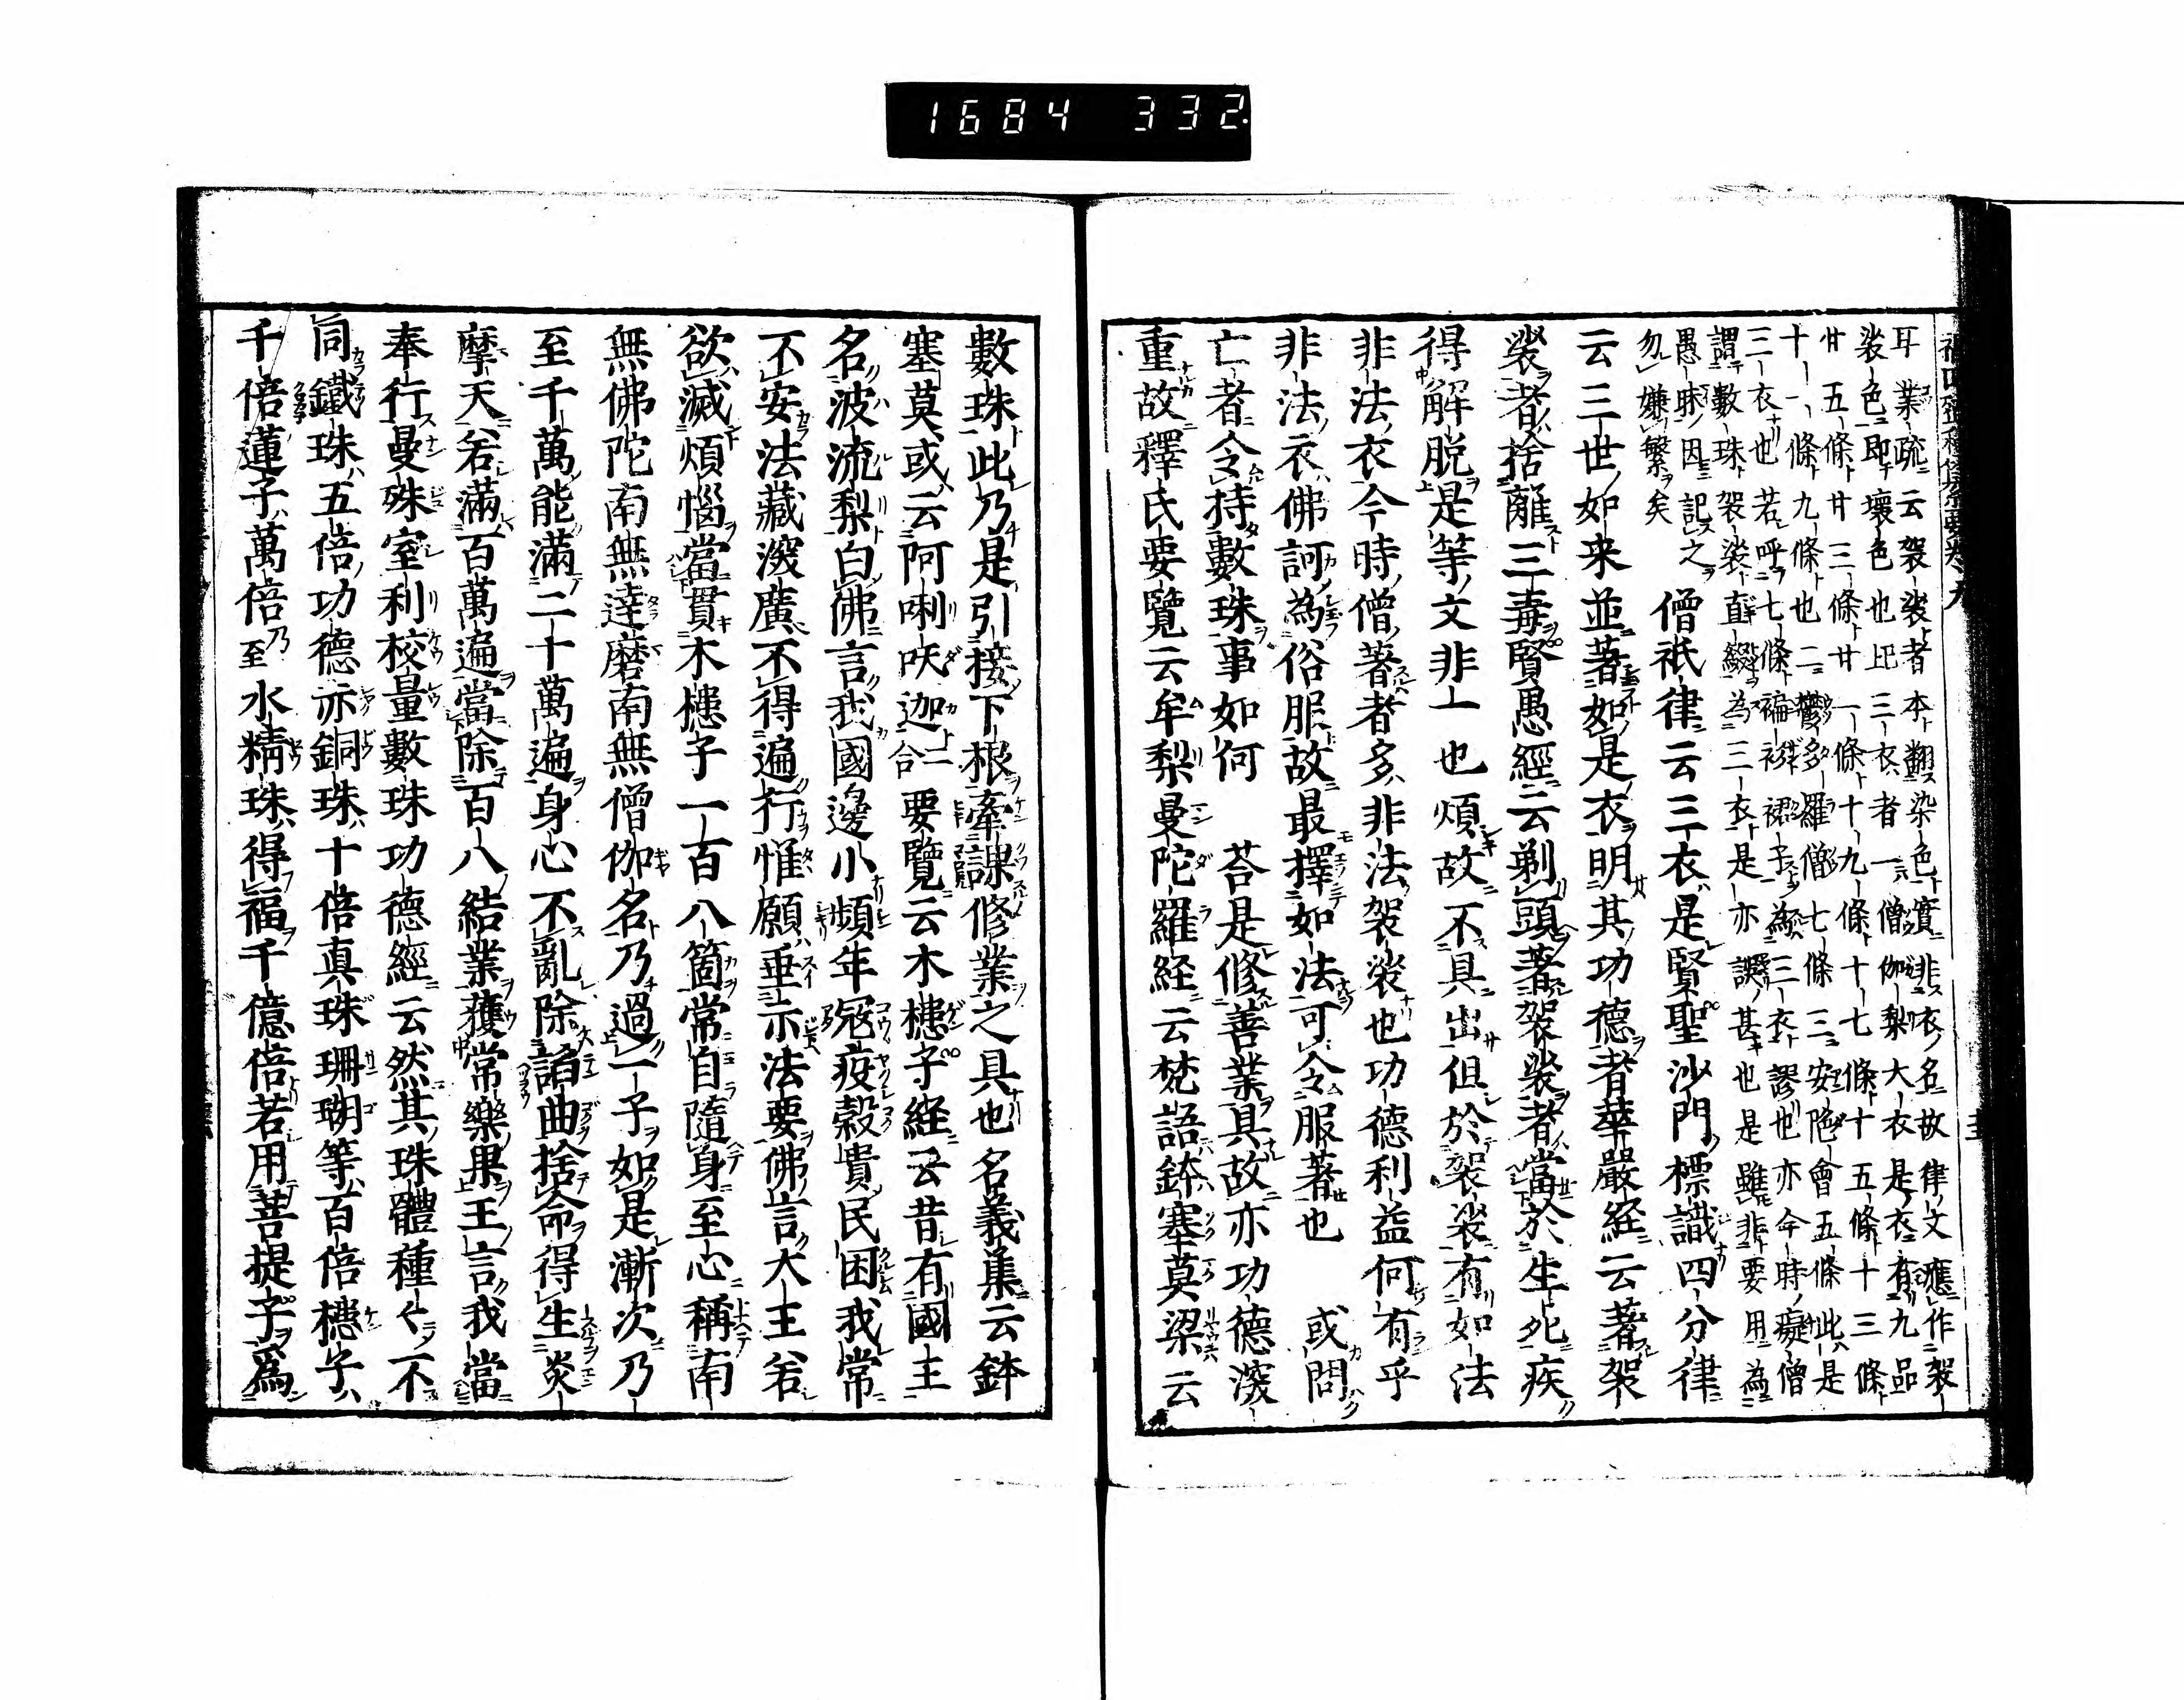 1684 332.
耳 業疏云袈裟者本翻染色實非衣名故律文應作袈
裟色即壞色也上三衣者一言僧伽梨大衣是衣有九品
廿五條廿三條廿一條十九條十七條十五條十三條
十一條九條也二鬱多羅僧七條三安陀會五條此是
三衣也若呼七條褊衫裙子為三衣謬也亦今時癡僧
謂數珠袈裟直綴為三衣是亦誤甚也是雖非要用為
愚昧因記之
勿嫌繁矣 僧祇律云三衣是賢聖沙門標識四分律
云三世如来並著如是衣明其功德者華嚴経云著袈
裟者捨離三毒賢愚經云剃頭著袈裟者當於生死疾
得解脱是等文非一也煩故不具出但於袈裟有如法
非法衣今時僧著者多非法袈裟也功德利益何有乎
非法衣佛訶為俗服故最擇如法可令服著也 或問
亡者令持數珠事如何 荅是修善業具故亦功德深
重故釋氏要覽云牟梨曼陀羅経云梵語鉢塞莫梁云
數珠此乃是引接下根牽課修業之具也名義集云鉢
塞莫或云阿唎吒迦二合 要覽云木槵子経云昔有國主
名波流梨白佛言我國邊小頻年寇疫穀貴民困我常
不安法藏深廣不得遍行惟願垂示法要佛言大王若
欲滅煩惱當貫木槵子一百八箇常自隨身至心稱南
無佛陀南無達磨南無僧伽名乃過一子如是漸次乃
至千萬能滿二十萬遍身心不亂除諂曲捨命得生炎
摩天若滿百萬遍當除百八結業獲常樂果王言我當
奉行曼殊室利校量數珠功德經云然其珠體種〻不
同鐵珠五倍功德亦銅珠十倍真珠珊瑚等百倍槵子
千倍蓮子萬倍乃至水精珠得福千億倍若用菩提子爲